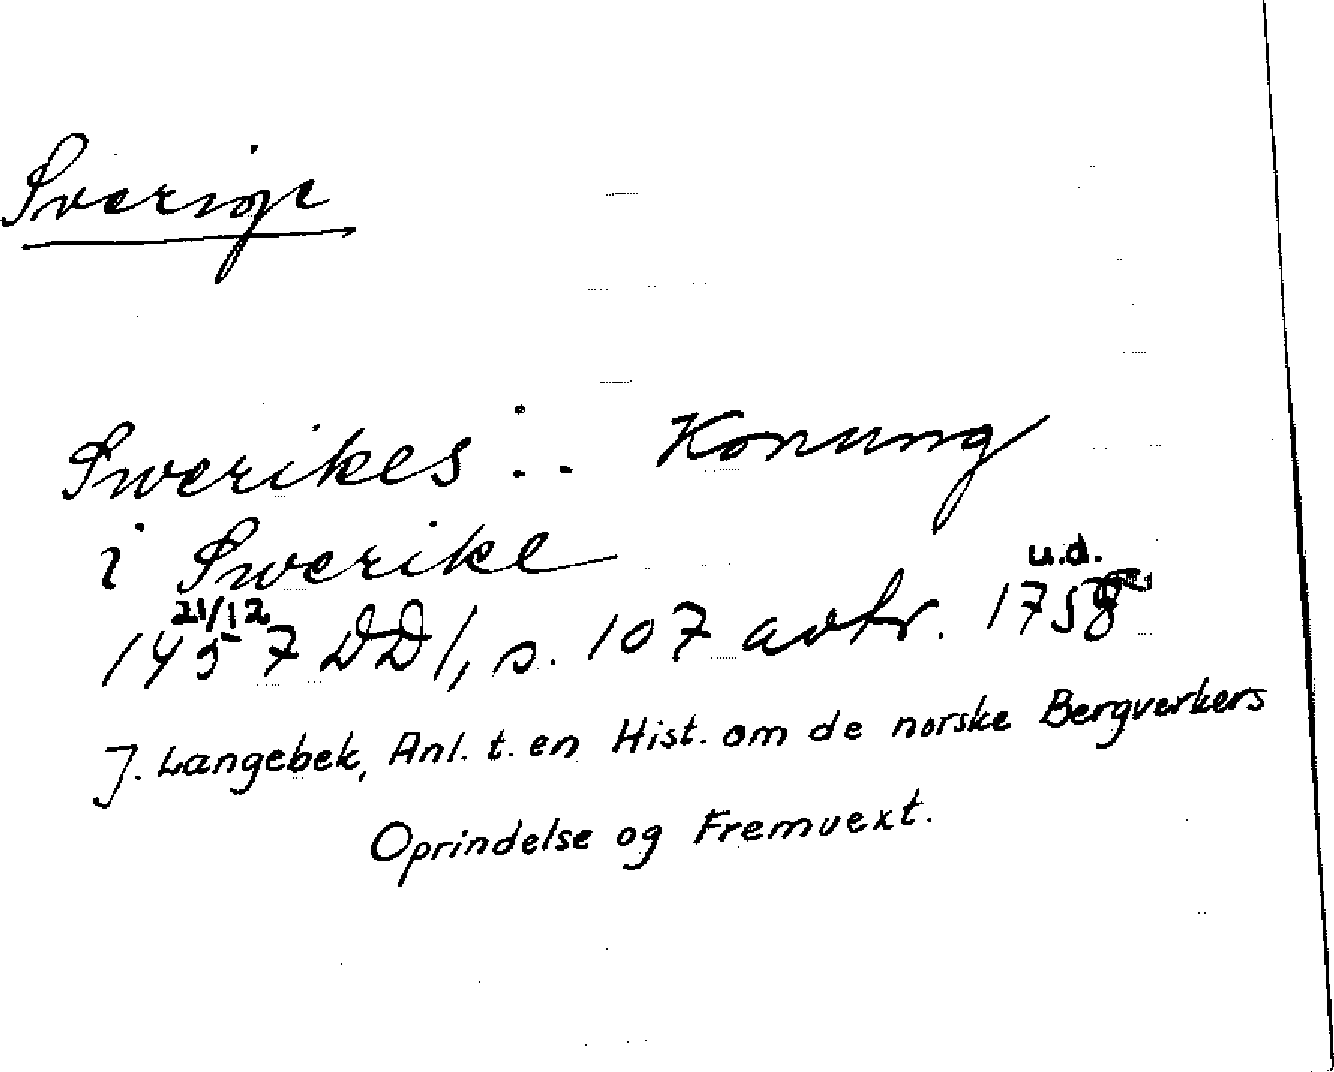 Sverige
Swerikes ... Konung
i Swerike
21/12 u.d.
1457 DD1, s. 107 avtr. 1758
J. Langebek, Anl. t. en Hist. om de norske Bergverkers
Oprindelse og Fremvext.